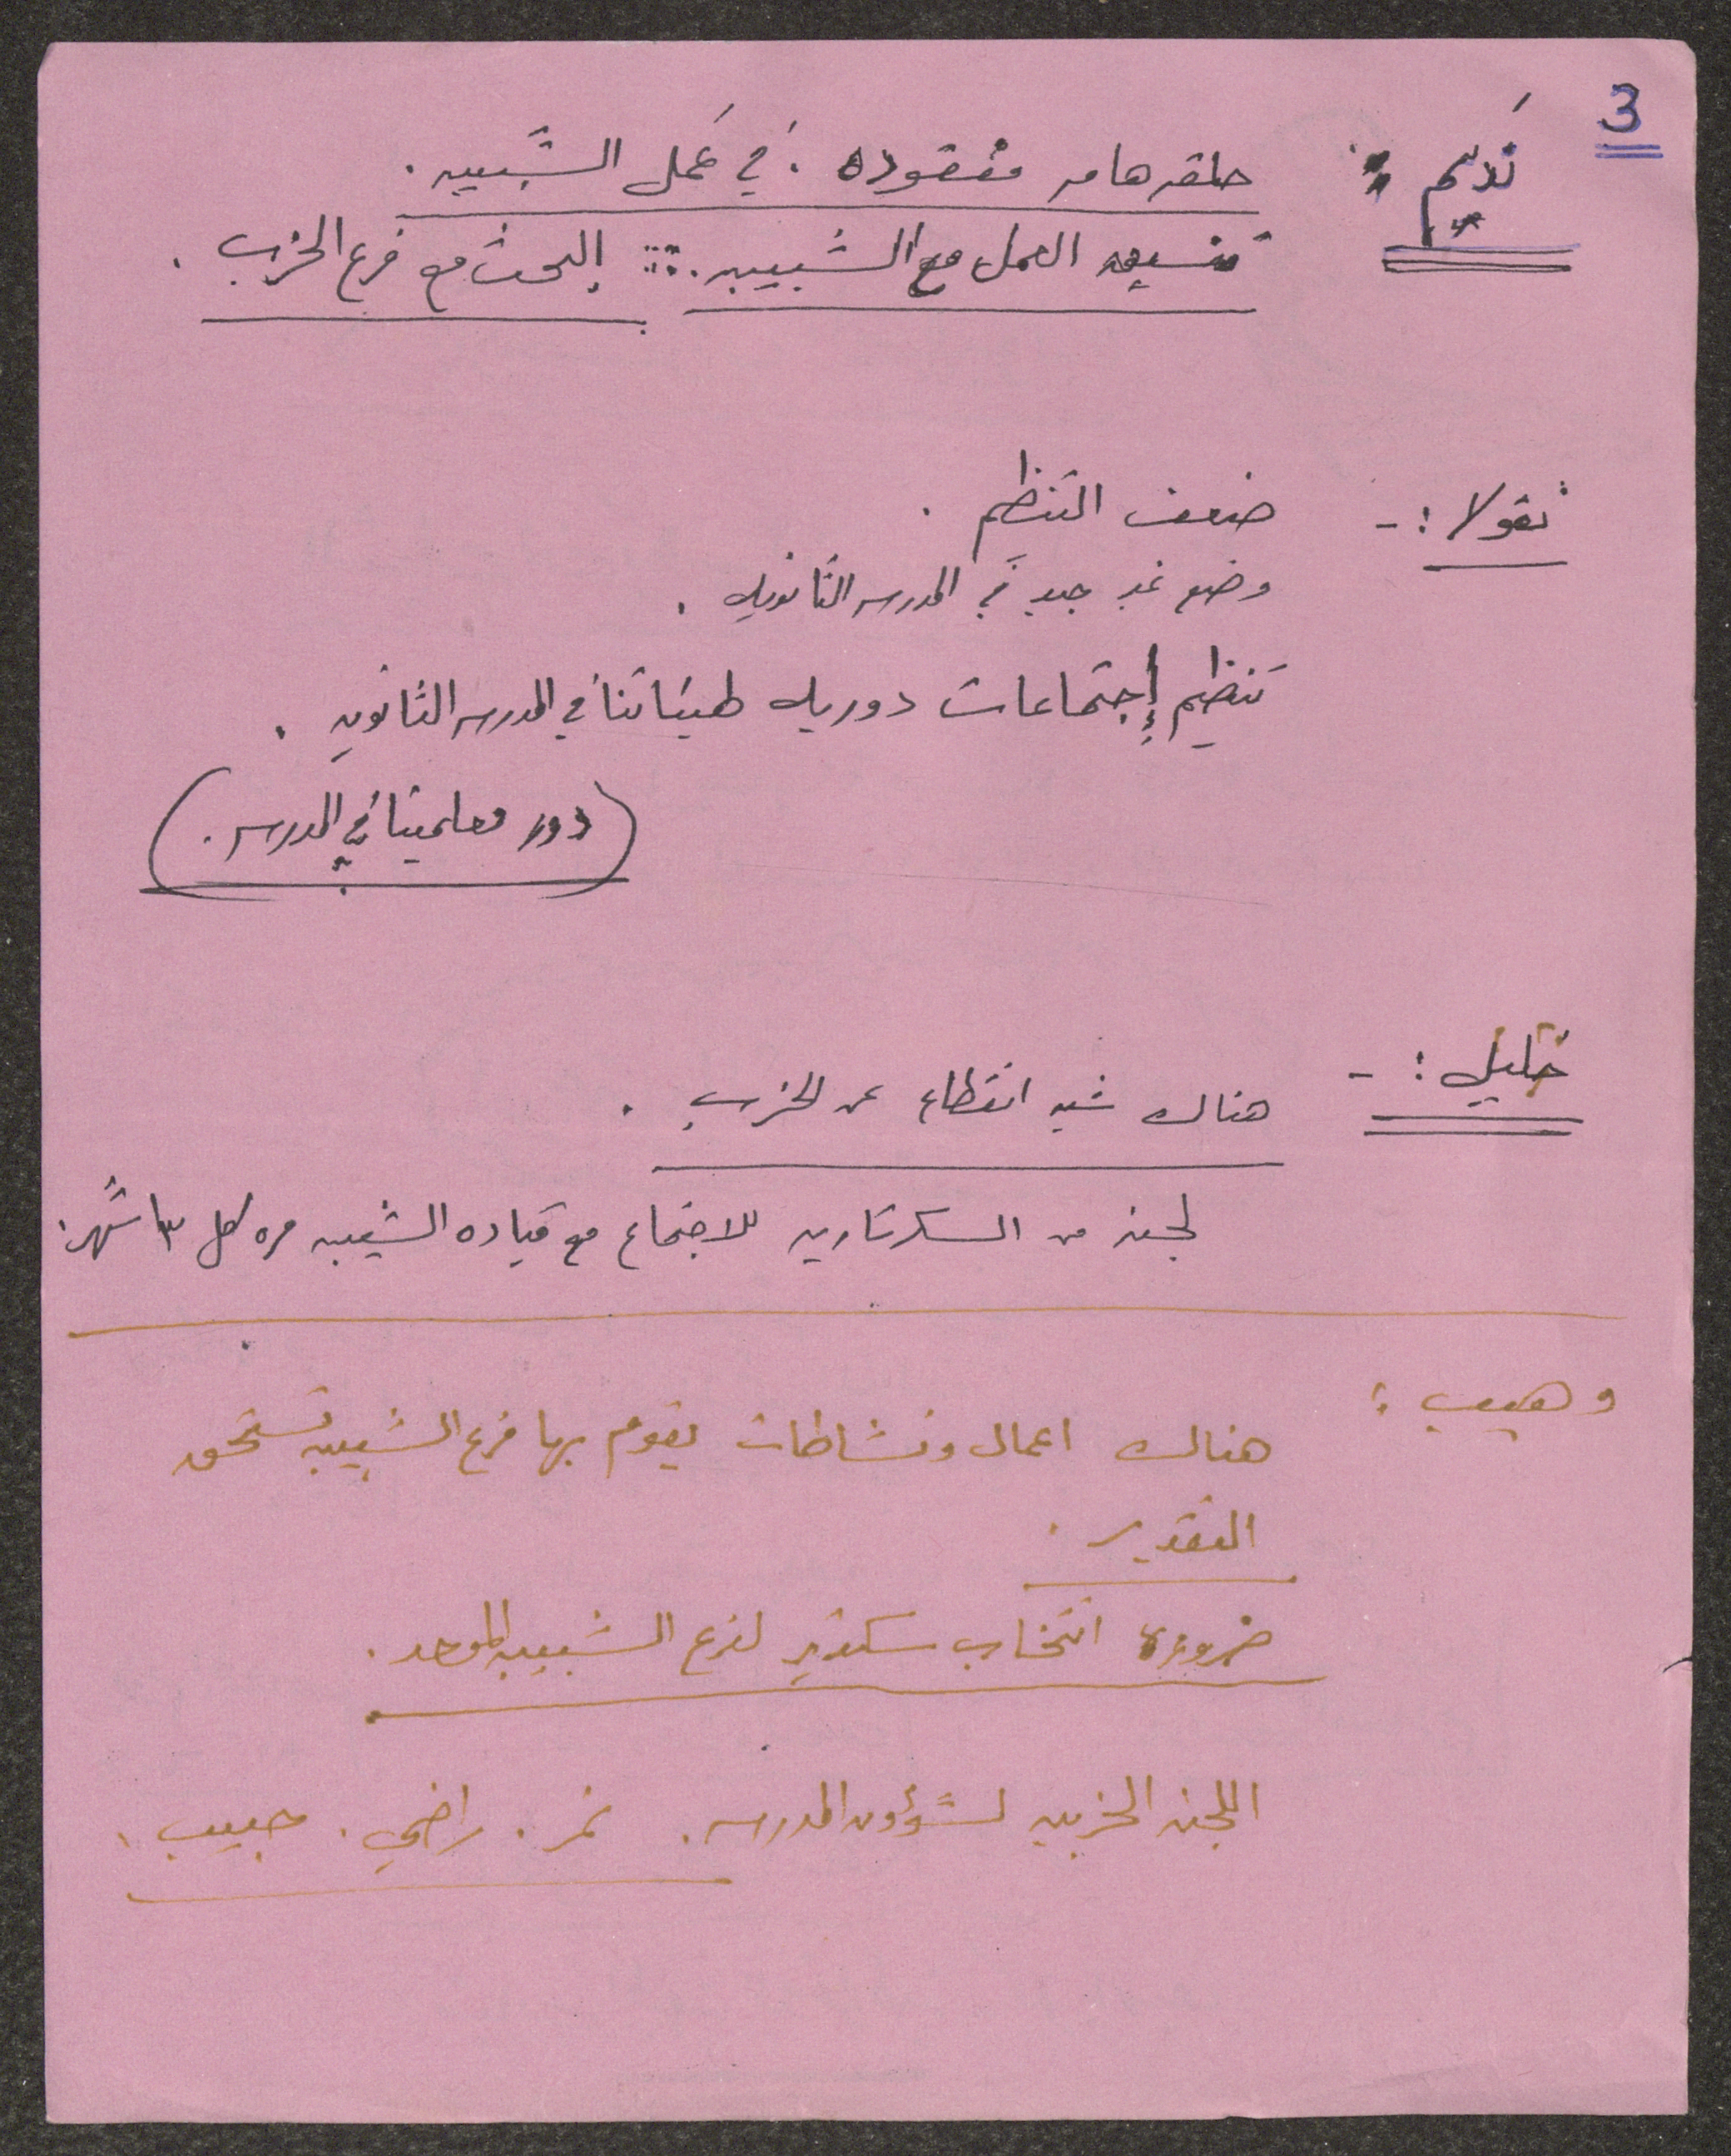 3
نديم : حلقه هامه مفقوده . في عمل الشبيبه .
تنسيق العمل مع الشبيبه . :: البحث مع فرع الحزب .
نقولا : - ضعف التنظيم .
وضع غير جيد في المدرسه الثانويه .
تنظيم إجتماعات دوريه في المدرسه الثانويه .
( دور معلمينا في المدرسه . )
خليل : - هناك شبه انقطاع عن الحزب .
لجنه من السكرتاريه للاجتماع مع قياده الشبيبه مره كل ٣ اشهر .
وهيب : هناك اعمال ونشاطات يقوم بها فرع الشبيبه تستحق
التقدير .
ضرورة انتخاب سكرتير لفرع الشبيبه الموحد .
اللجنه الحزبيه لشؤون المدرسه . نمر . راضي . حبيب .